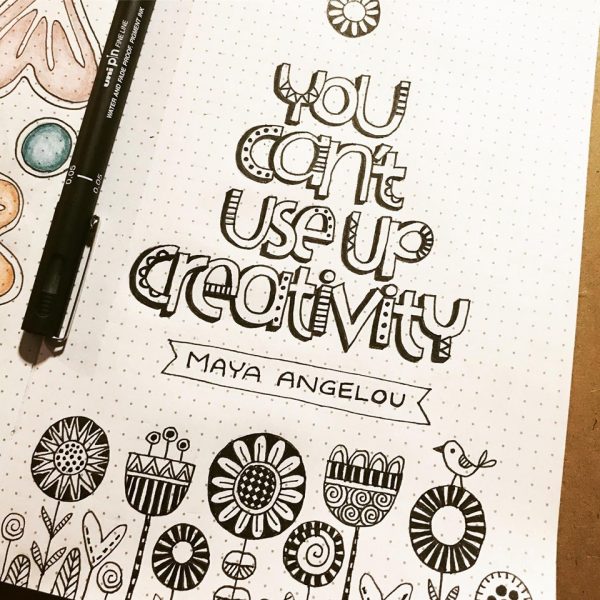 YOU
can't
use up
creativity
MAYA ANGELOU
uni pin FINE LINE
WATER AND FADE PROOF, PIGMENT INK
0.05
0.05